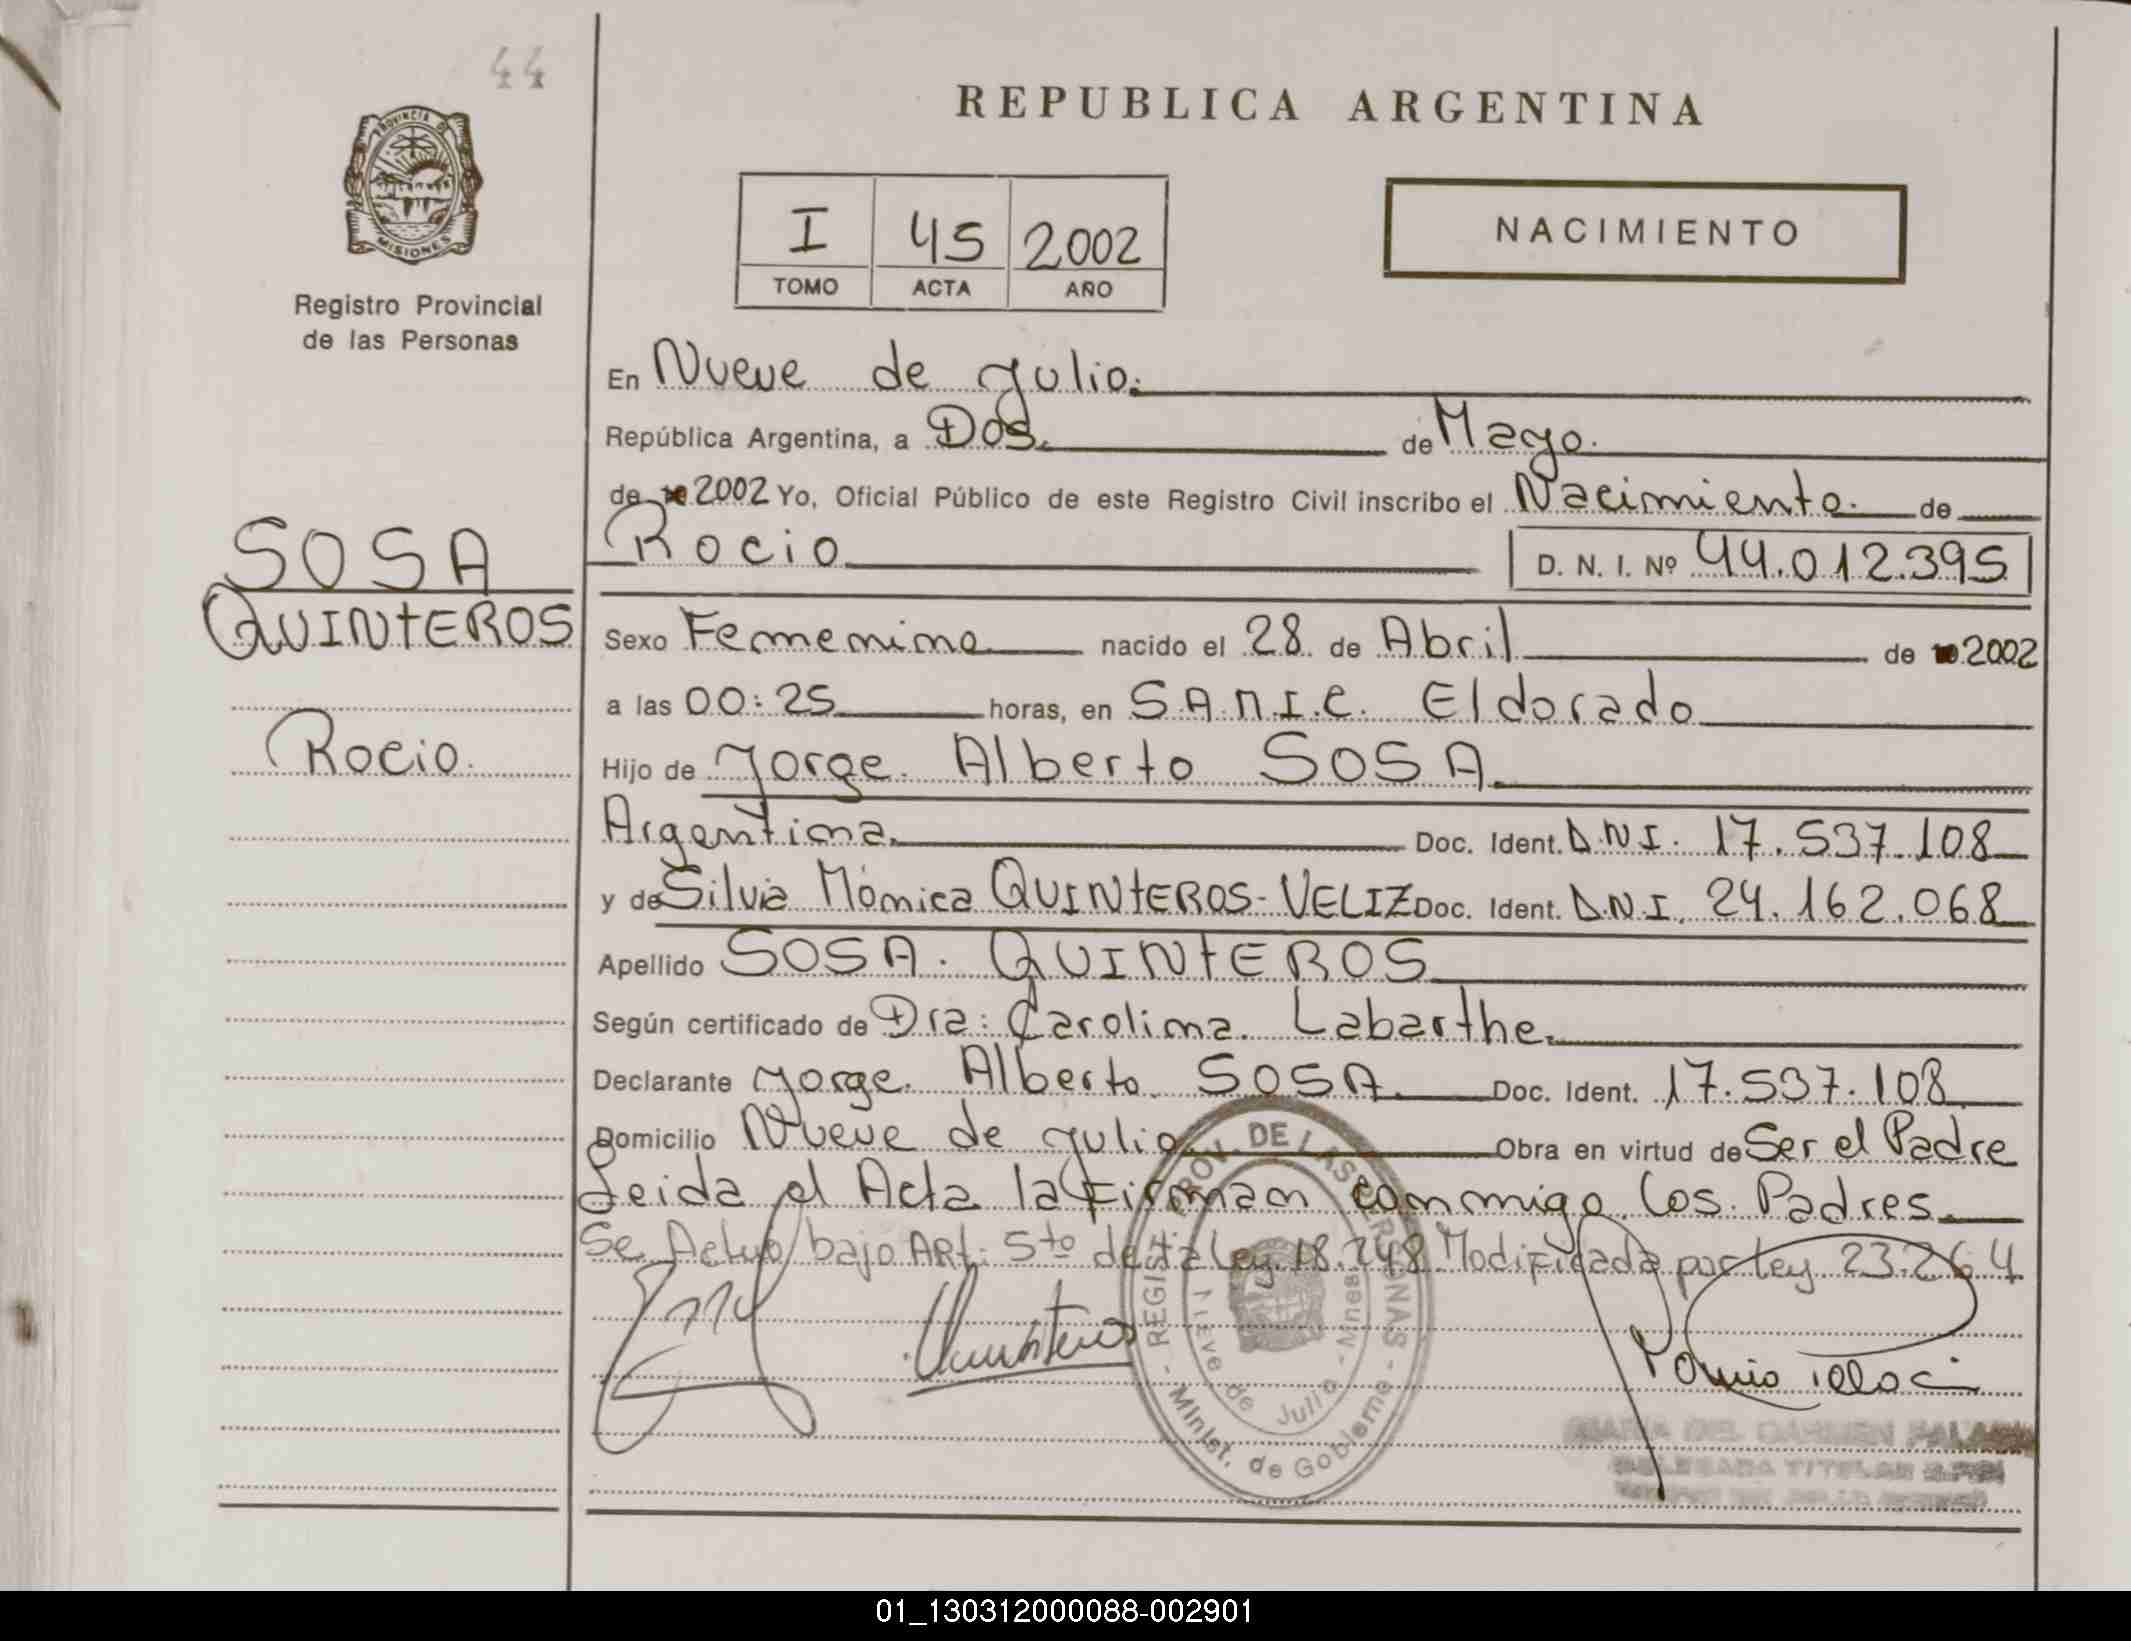 44
PROVINCIA DE
MISIONES
Registro Provincial
de las Personas
SOSA
QUINTEROS
Rocio.
REPUBLICA ARGENTINA
I 45 2002
TOMO ACTA AÑO
NACIMIENTO
En Nueve de Julio.
República Argentina, a Dos. de Mayo.
de 2002 Yo, Oficial Público de este Registro Civil inscribo el Nacimiento. de
Rocio D. N. I. Nº 44.012.395
Sexo Femenino nacido el 28 de Abril de 2002
a las 00:25 horas, en S.A.M.I.C. Eldorado
Hijo de Jorge. Alberto SOSA.
Argentina. Doc. Ident. D.N.I. 17.537.108
y de Silvia Mónica QUINTEROS-VELIZ Doc. Ident. D.N.I. 24.162.068
Apellido SOSA. QUINTEROS
Según certificado de Dra: Carolina. Labarthe.
Declarante Jorge. Alberto SOSA. Doc. Ident. 17.537.108
Domicilio Nueve de Julio Obra en virtud de Ser el Padre
Leida el Acta la Firman conmigo los Padres.
Se Actuó bajo ARt: 5to de la Ley 18.248 Modificada por Ley 23.264
REGIST. PROV. DE LAS PERSONAS
Nueve de Julio - Mnes
Minist. de Gobierno
MARIA DEL CARMEN
DELEGADA TITULAR
01_130312000088-002901